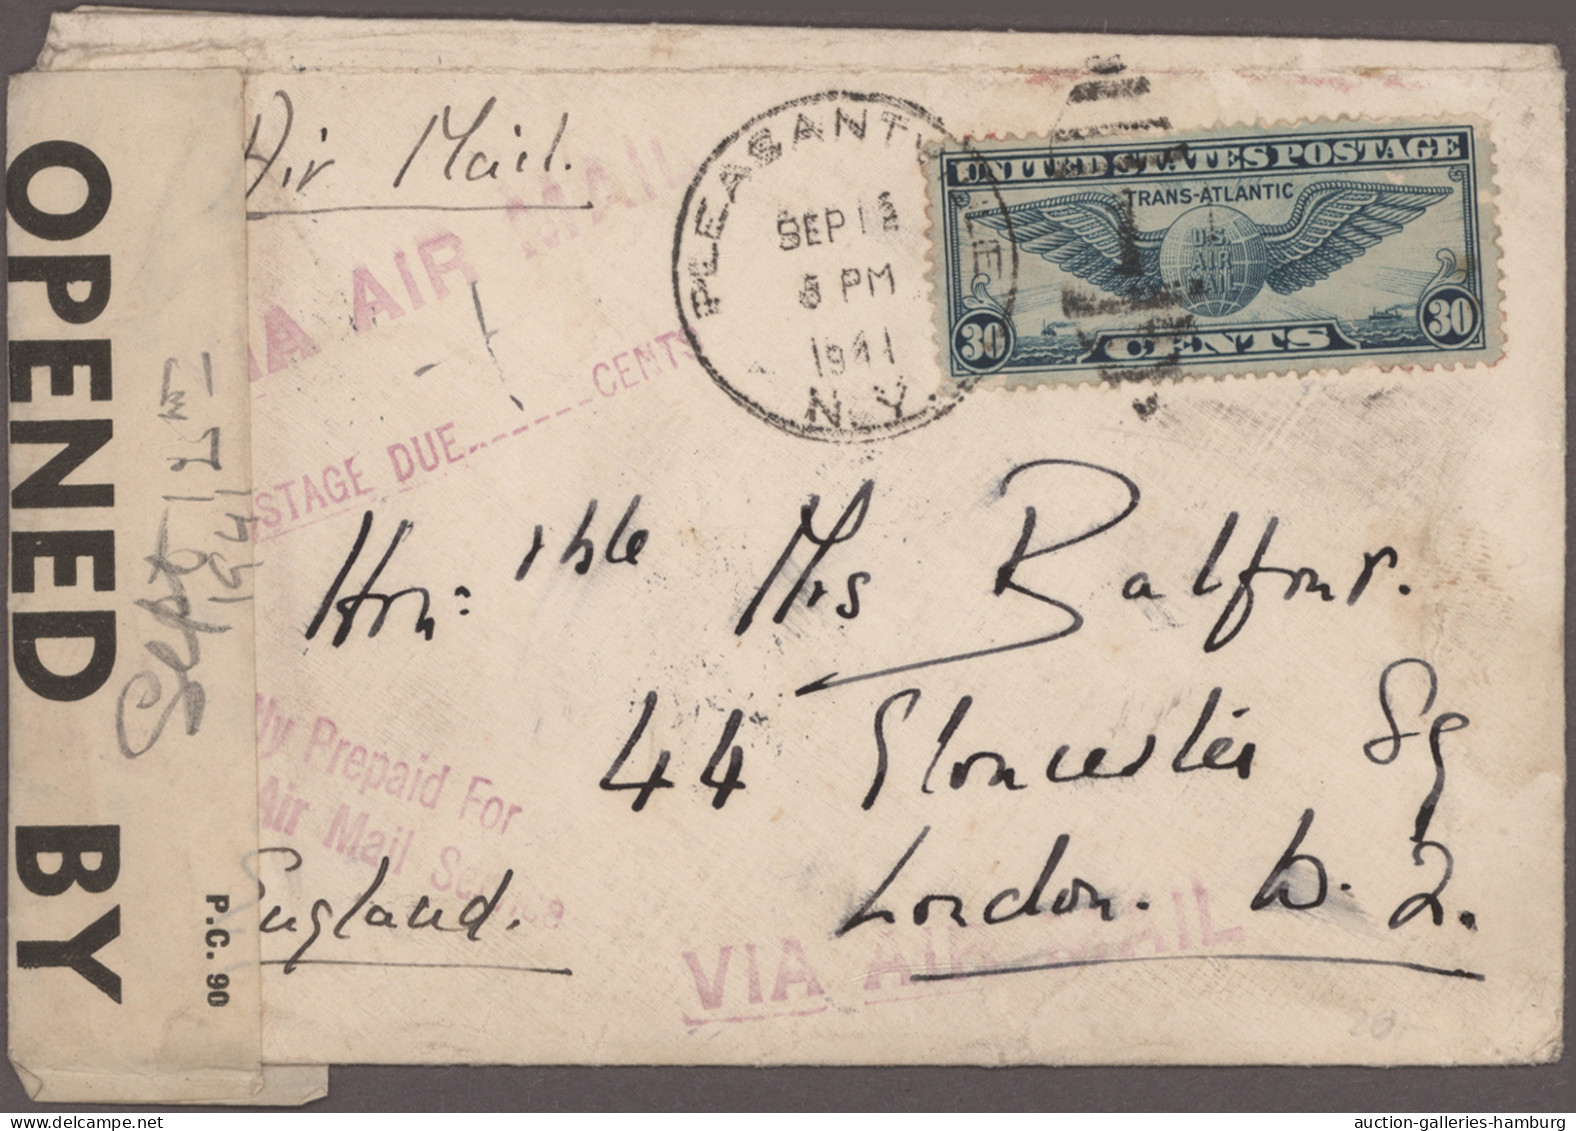 Air Mail.
VIA AIR MAIL
PLEASANTVILLE
SEP 12
6 PM
1941
N.Y.
UNITED STATES POSTAGE
TRANS-ATLANTIC
U.S.
AIR
MAIL
30 CENTS 30
STAGE DUE------CENTS
Hon:'ble Mrs Balfour.
44 Gloucester Sq
London. W. 2.
England.
lly Prepaid For
Air Mail Service
VIA AIR MAIL
OPENED BY
P.C. 90
Sept 12th
1941
20.-
auction-galleries-hamburg